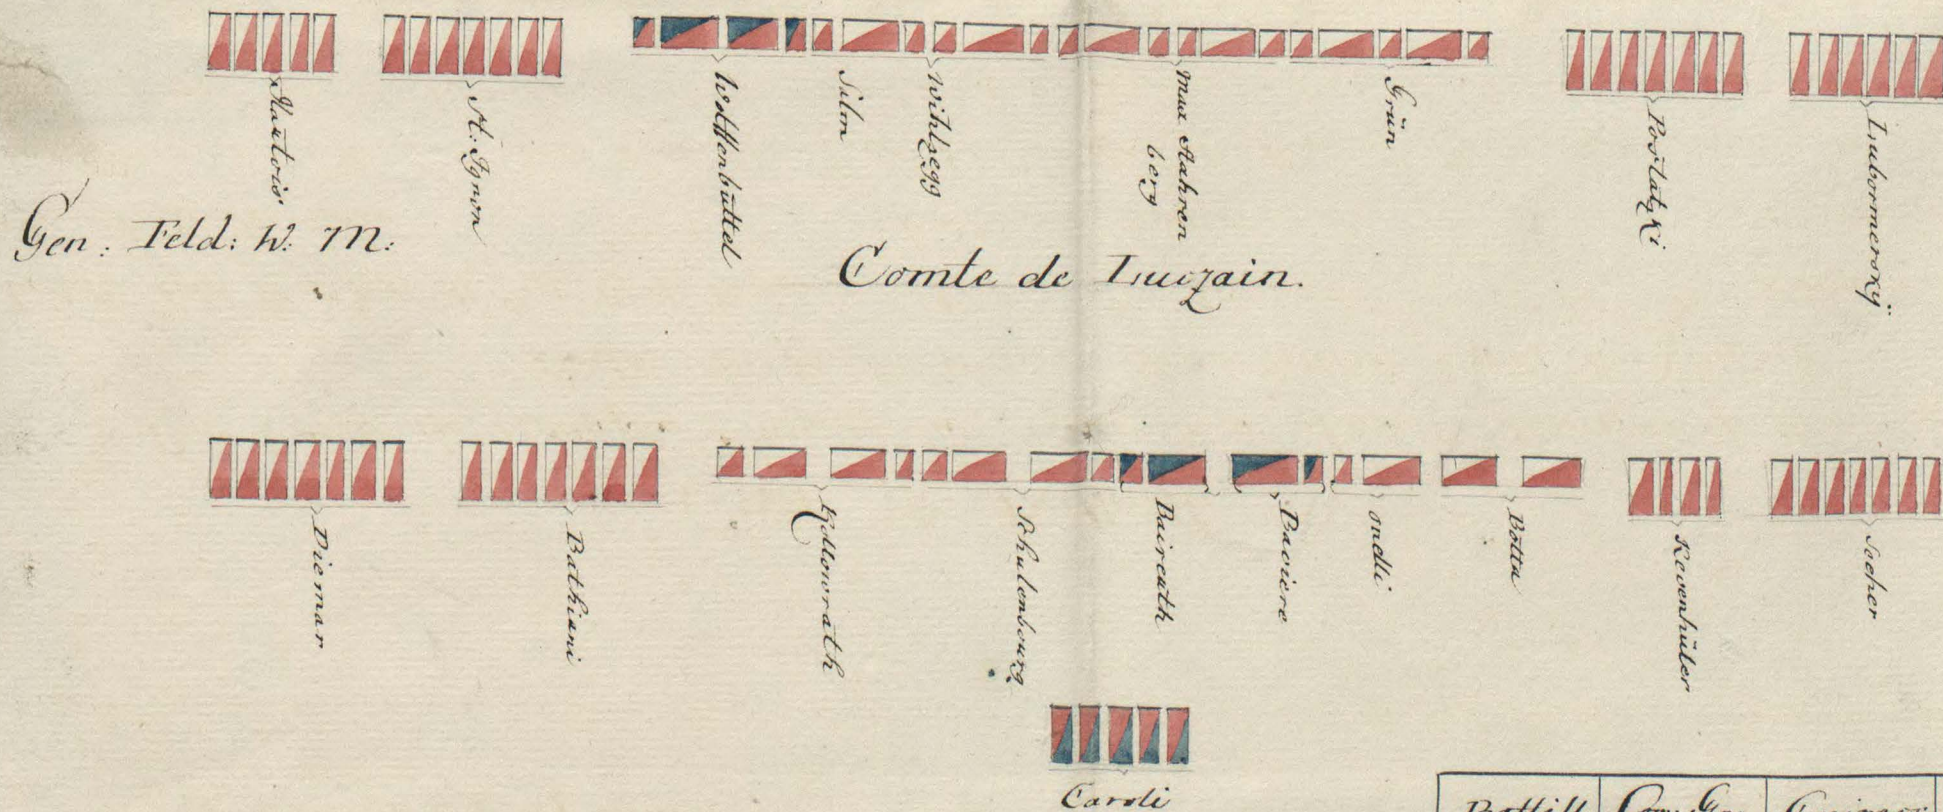 Hautois
St: Ignon
Wolffenbüttel
Silm
Wihlzegg
Max Stahren
berg
Grün
Postatzki
Lubormerskÿ
Gen: Feld: W: M:
Comte de Luczain.
Diemar
Bathiani
Kollowrath
Schulenbourg
Baireuth
Baviere
ondli
Botta
Kevenhüler
Socher
Caroli
Battill